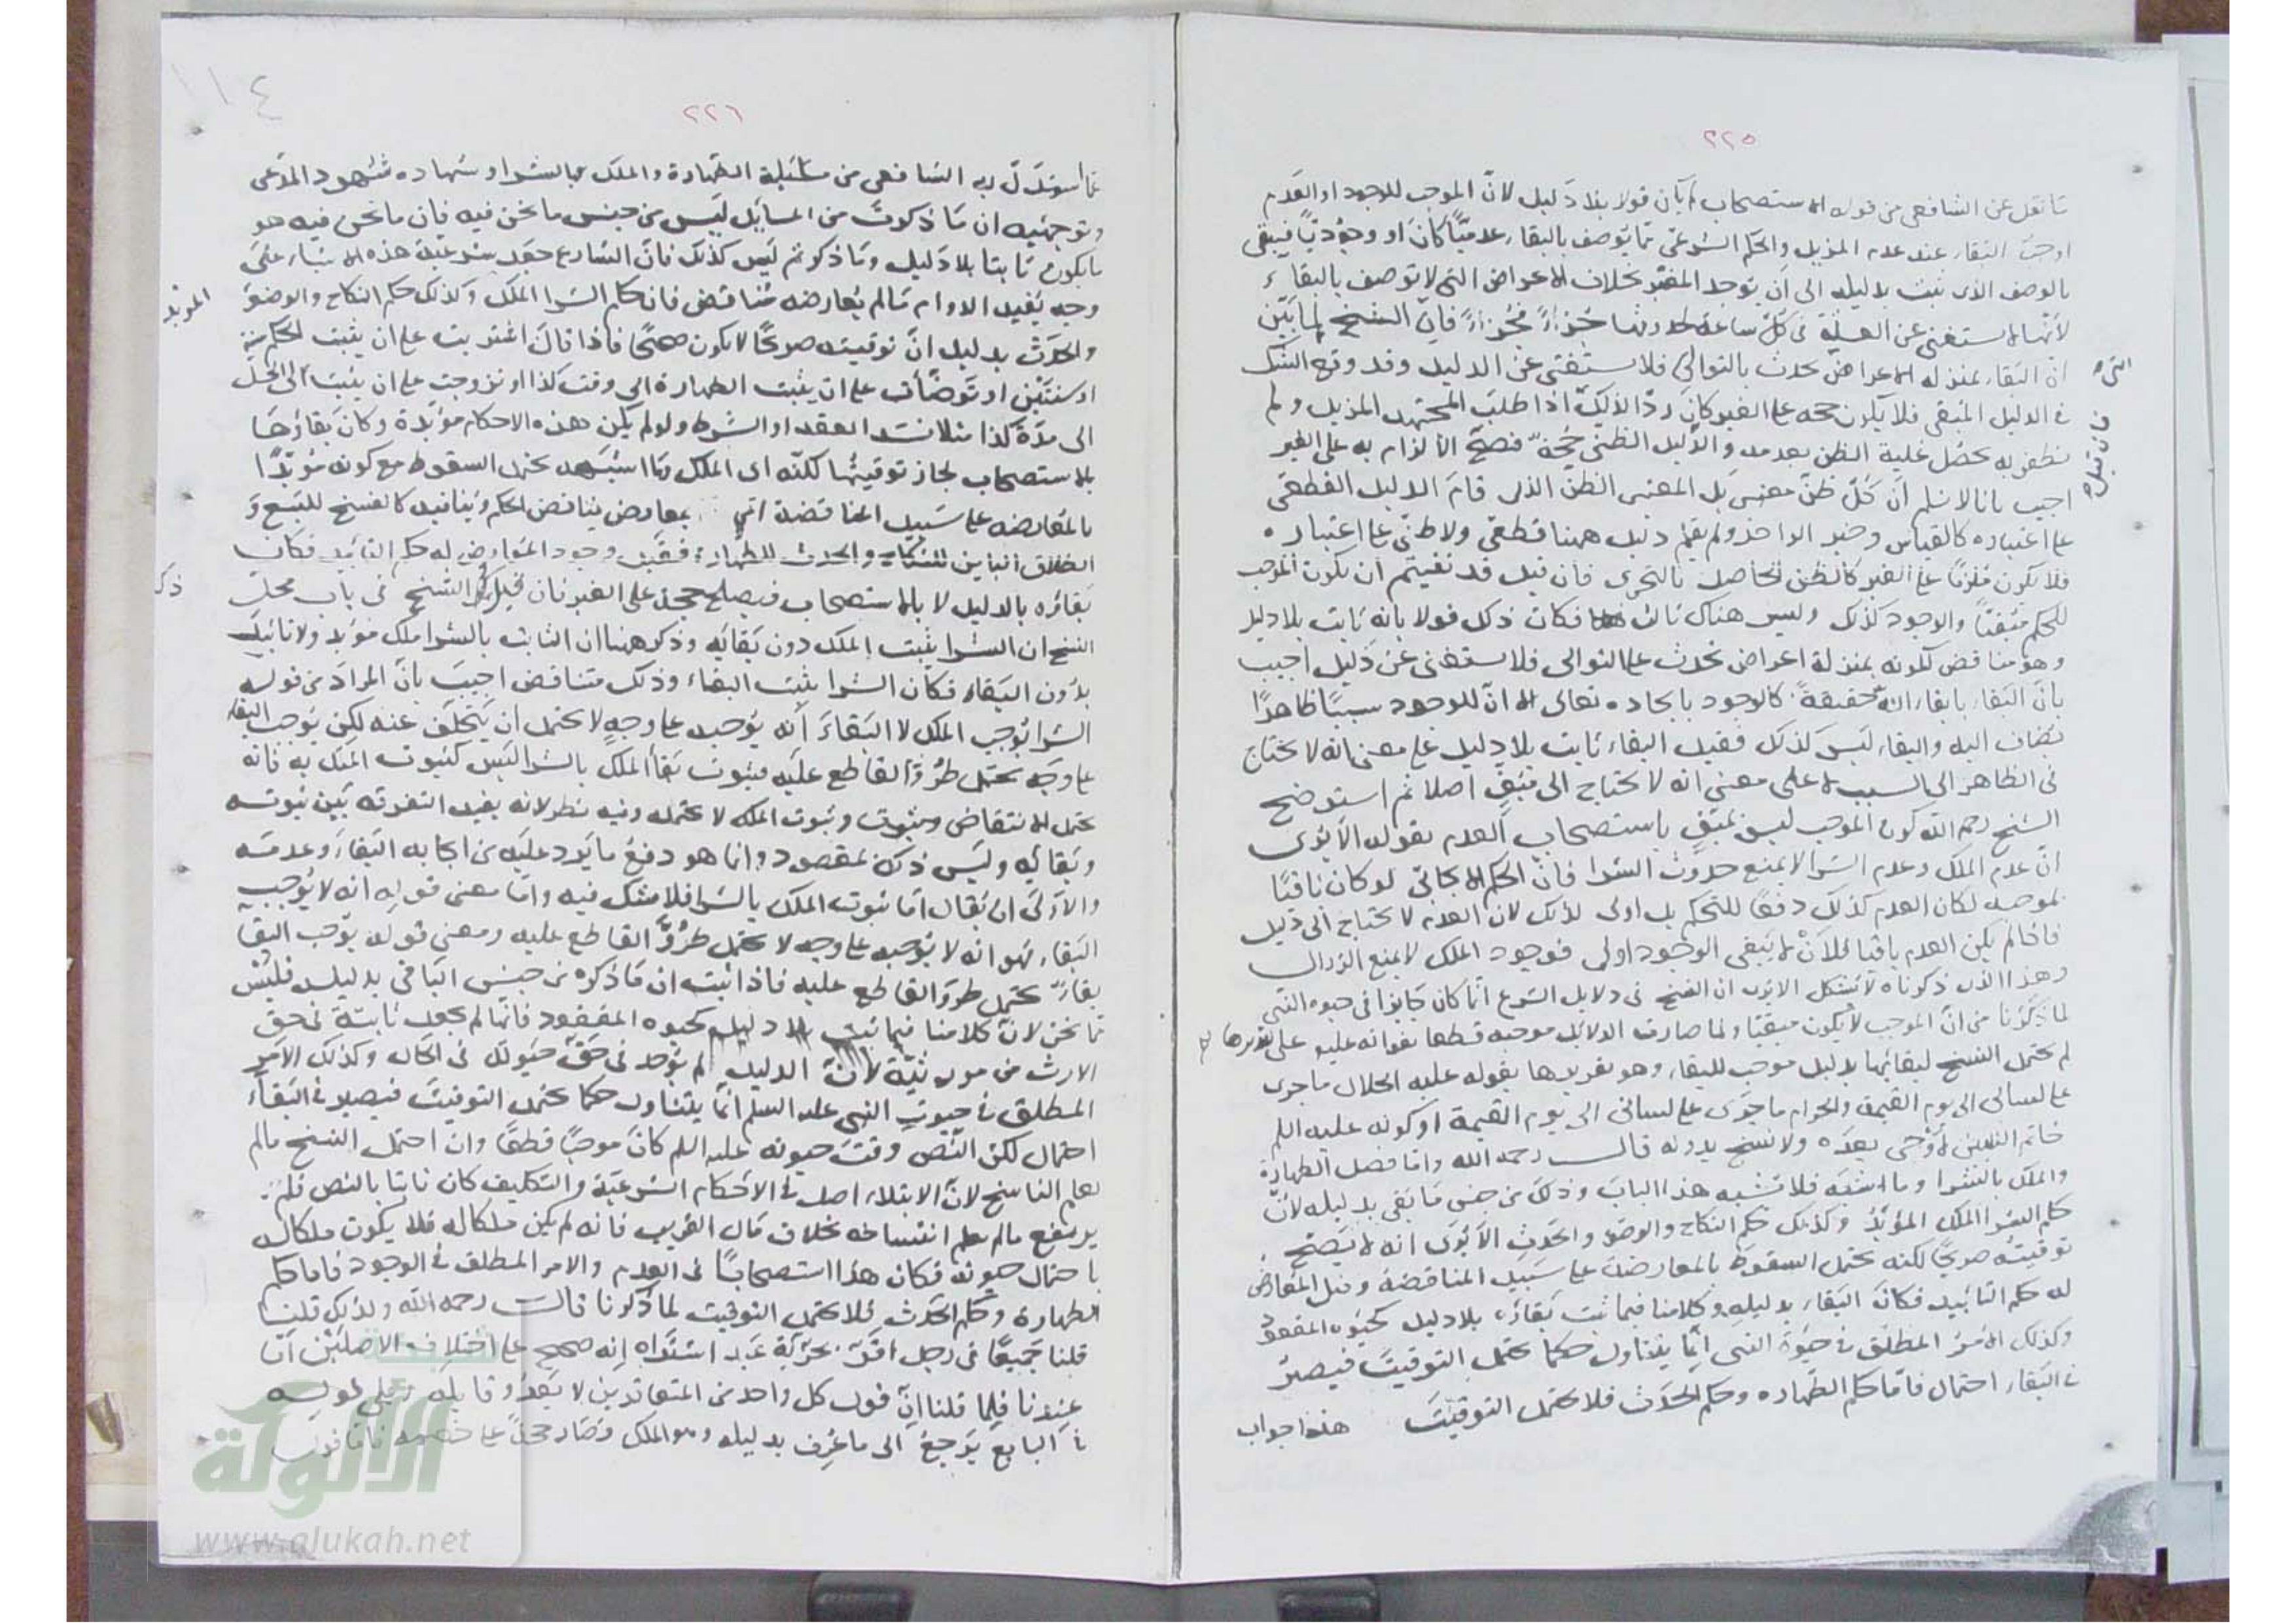 ٢٢٥
ما نقل عن الشافعي من قوله الاستصحاب بان قولا بلا دليل لان الموجب للوجود او العدم
اوجب البقاء عند عدم المزيل والحكم الشرعي مما يوصف بالبقاء عدميا كان او وجوديا فيبقى
بالوصف الذي ثبت بدليله الى ان يوجد المغير بخلاف الاعراض التي لا توصف بالبقاء
لانها لا يستغنى عن العلة في كل ساعة جزءا فجزءا فان الشيخ لما بين
ان البقاء بمنزلة الاعراض يحدث بالتوالي فلا يستغنى عن الدليل وقد وقع الشك
في الدليل المبقي فلا يكون حجة على الغير كان ردا لذلك اذا طلب المجتهد المزيل ولم
يظفر به يحصل غلبة الظن بعدمه والدليل الظني حجة فصح الالزام به على الغير
اجيب بانا لا نسلم ان كل ظن معتبر بل المعتبر الظن الذي قام الدليل القطعي
على اعتباره كالقياس وخبر الواحد ولم يقم دليل ههنا قطعي ولا ظني على اعتباره
فلا يكون ملزما على الغير كالظن الحاصل بالتحري فان قيل قد نفيتم ان يكون الموجب
للحكم مبقيا والوجود كذلك وليس هناك ثالث فكان ذلك قولا بانه ثابت بلا دليل
وهو مناقض لكونه بمنزلة اعراض تحدث على التوالي فلا يستغنى عن دليل اجيب
بان البقاء بابقاء الله حقيقة كالوجود بايجاده تعالى الا ان للوجود سببا ظاهرا
يضاف اليه والبقاء ليس كذلك فقيل البقاء ثابت بلا دليل على معنى انه لا يحتاج
في الظاهر الى السبب لا على معنى انه لا يحتاج الى مبق اصلا ثم استوضح
الشيخ رحمه الله كون الموجب ليس بمبق باستصحاب العدم بقوله الا يرى
ان عدم الملك وعدم الشرا لا يمنع حدوث الشرا فان الحكم الايجابي لو كان باقيا
بموجبه لكان العدم كذلك دفعا للتحكم بل اولى لذلك لان العدم لا يحتاج الى دليل
فاذا لم يكن العدم باقيا فلان لا يبقى الوجود اولى فوجود الملك لا يمنع الزوال
وهذا الذي ذكرناه لا يشكل الا يرى ان النسخ في دلايل الشرع انما كان جايزا في حيوة النبي
لما ذكرنا من ان الموجب لا يكون مبقيا ولما صارت الدلايل موجبة قطعا بوفاته عليه على تقريرها
لم يحتمل النسخ لبقائها بدليل موجب للبقاء وهو تقريرها بقوله عليه الحلال ما جرى
على لساني الى يوم القيمة والحرام ما جرى على لساني الى يوم القيمة او كونه عليه السلم
خاتم النبيين لا وحي بعده ولا نسخ بدونه قال رحمه الله واما فصل الطهارة
والملك بالشرا وما اشبهه فلا تشبه هذا الباب وذلك من جنس ما بقي بدليله لان
حكم الشرا الملك المؤبد وكذلك حكم النكاح والوضوء والحدث الا يرى انه لا يصح
توقيته صريحا لكنه يحتمل السقوط بالمعارضة على سبيل المناقضة وقبل المعارض
له حكم التابيد فكان البقاء بدليله وكلامنا فيما ثبت بقاؤه بلا دليل كحيوة المفقود
وكذلك الامر المطلق في حيوة النبي انما يتناول حكما يحتمل التوقيت فيصير
في البقاء احتمال فاما حكم الطهارة وحكم الحدث فلا يحتمل التوقيت هذا جواب
فان قيل
٢٢٦
عما استدل به الشافعي من مسئلة الطهارة والملك بالشرا وشهادة شهود المدعي
وتوجيهه ان ما ذكرت من المسايل ليس من جنس ما نحن فيه فان ما نحن فيه هو
ما يكون ثابتا بلا دليل وما ذكرتم ليس كذلك فان الشارع جعل شرعية هذه الاشياء على
وجه يفيد الدوام ما لم يعارضه مناقض فان حكم الشرا الملك وكذلك حكم النكاح والوضوء
المؤبد
والحدث بدليل ان توقيته صريحا لا يكون صحيحا فاذا قال اشتريت على ان يثبت الحكم سنة
او سنتين او توضأت على ان يثبت الطهارة الى وقت كذا او تزوجت على ان يثبت لي الحل
الى مدة كذا مثلا فسد العقد او الشرط ولو لم يكن هذه الاحكام مؤبدة وكان بقاؤها
بالاستصحاب لجاز توقيتها لكنه اي الملك وما اشبهه يحتمل السقوط مع كونه مؤبدا
بالمعارضة على سبيل المناقضة اي بمعارض يناقض الحكم وينافيه كالفسخ للبيع و
الطلاق الباين للنكاح والحدث للطهارة فقبل وجود المعارض له حكم التابيد فكان
بقاؤه بالدليل لا بالاستصحاب فيصلح حجة على الغير فان قيل ذكر الشيخ في باب محل
النسخ ان الشرا يثبت الملك دون بقائه وذكر ههنا ان الثابت بالشرا ملك مؤبد ولا تابيد
بدون البقاء فكان الشرا يثبت البقاء وذلك متناقض اجيب بان المراد من قوله
الشرا يوجب الملك لا البقاء انه يوجبه على وجه لا يحتمل ان يتخلف عنه لكن يوجب البقاء
على وجه يحتمل طرو القاطع عليه فثبوت بقاء الملك بالشرا ليس كثبوت الملك به فانه
يحتمل الانتقاض وثبوت الملك لا يحتمله وفيه نظر لانه يفيد التفرقة بين ثبوته
وبقائه وليس ذلك بمقصود وانما هو دفع ما يرد عليه من ايجابه البقاء وعدمه
والاولى ان يقال اما ثبوت الملك بالشرا فلا شك فيه واما معنى قوله انه لا يوجب
البقاء فهو انه لا يوجبه على وجه لا يحتمل طرو القاطع عليه ومعنى قوله يوجب البقا
بقاء يحتمل طرو القاطع عليه فاذا ثبت ان ما ذكره من جنس الباقي بدليل فليس
مما نحن لان كلامنا فيما ثبت بلا دليل كحيوة المفقود فانها لم يجعل ثابتة في حق
الارث من مورثيه لان الدليل لم يوجد في حق حيوته في الحال وكذلك الامر
المطلق في حيوة النبي عليه السلم انما يتناول حكما يحتمل التوقيت فيصير في البقاء
احتمال لكن النص وقت حيوته عليه السلم كان موجبا قطعا وان احتمل النسخ ما لم
يعلم الناسخ لان الابتلاء اصل في الاحكام الشرعية والتكليف كان ثابتا بالنص فلم
يرتفع ما لم يعلم انتساخه بخلاف مال القريب فانه لم يكن ملكا له فلا يكون ملكا له
باحتمال حيوته فكان هذا استصحابا في العدم والامر المطلق في الوجود فاما حكم
الطهارة وحكم الحدث فلا يحتمل التوقيت لما ذكرنا قال رحمه الله ولذلك قلنا
قلنا جميعا في رجل اقر بحرية عبد اشتراه انه صحيح على اختلاف الاصلين اما
عندنا فلما قلنا ان قول كل واحد من المتعاقدين لا يعدو قايله
البايع يرجع الى ما عرف بدليله وهو الملك وصار حجة على خصمه فاما قول
شبكة
الألوكة
www.alukah.net